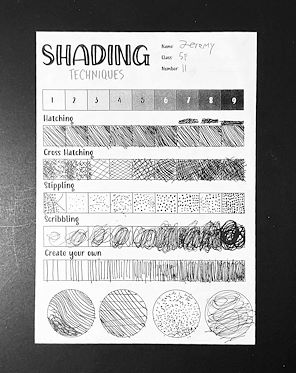 SHADING
TECHNIQUES
Name Jeremy
Class 5P
Number 11
1 2 3 4 5 6 7 8 9
Hatching
Cross Hatching
Stippling
Scribbling
Create your own